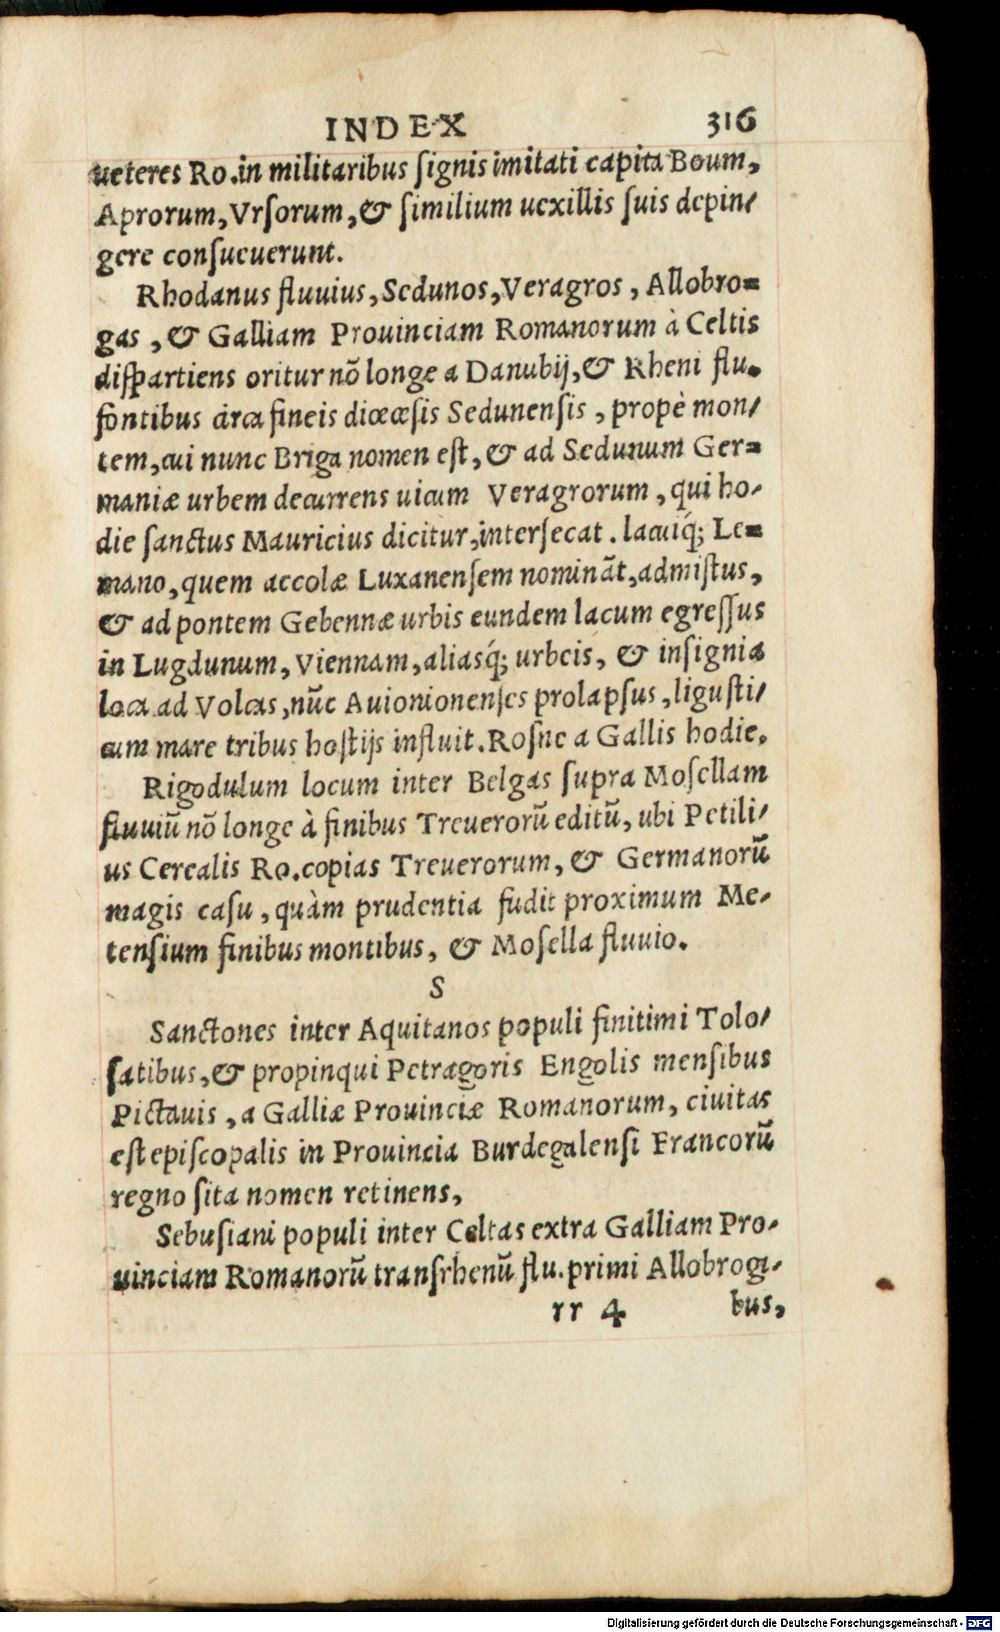 INDEX 316
ueteres Ro.in militaribus ſignis imitati capita Boum,
Aprorum,Vrſorum,& ſimilium uexillis ſuis depin/
gere conſueuerunt.
Rhodanus fluuius,Sedunos,Veragros, Allobro=
gas, & Galliam Prouinciam Romanorum à Celtis
diſpartiens oritur nõ longe a Danubij,& Rheni flu.
fontibus circa fineis diœcæſis Sedunenſis, propè mon/
tem,cui nunc Briga nomen eſt,& ad Sedunum Ger=
maniæ urbem decurrens uicum Veragrorum, qui ho/
die ſanctus Mauricius dicitur,interſecat. lacuiq́; Le=
mano,quem accolæ Luxanenſem nominãt,admiſtus,
& ad pontem Gebennæ urbis eundem lacum egreſſus
in Lugdunum,Viennam,aliasq́; urbeis, & inſignia
loca ad Volcas,nũc Auionionenſes prolapſus,liguſti/
cum mare tribus hoſtijs influit.Roſne a Gallis hodie.
Rigodulum locum inter Belgas ſupra Moſellam
fluuiũ nõ longe à finibus Treuerorũ editũ, ubi Petili/
us Cerealis Ro.copias Treuerorum, & Germanorũ
magis caſu, quàm prudentia fudit proximum Me/
tenſium finibus montibus, & Moſella fluuio.
S
Sanctones inter Aquitanos populi finitimi Tolo/
ſatibus,& propinqui Petragoris Engolis menſibus
Pictauis, a Galliæ Prouinciæ Romanorum, ciuitas
eſt epiſcopalis in Prouincia Burdegalenſi Francorũ
regno ſita nomen retinens,
Sebuſiani populi inter Celtas extra Galliam Pro/
uinciam Romanorũ tranſrhenũ flu.primi Allobrogi/
rr 4 bus,
Digitalisierung gefördert durch die Deutsche Forschungsgemeinschaft - DFG